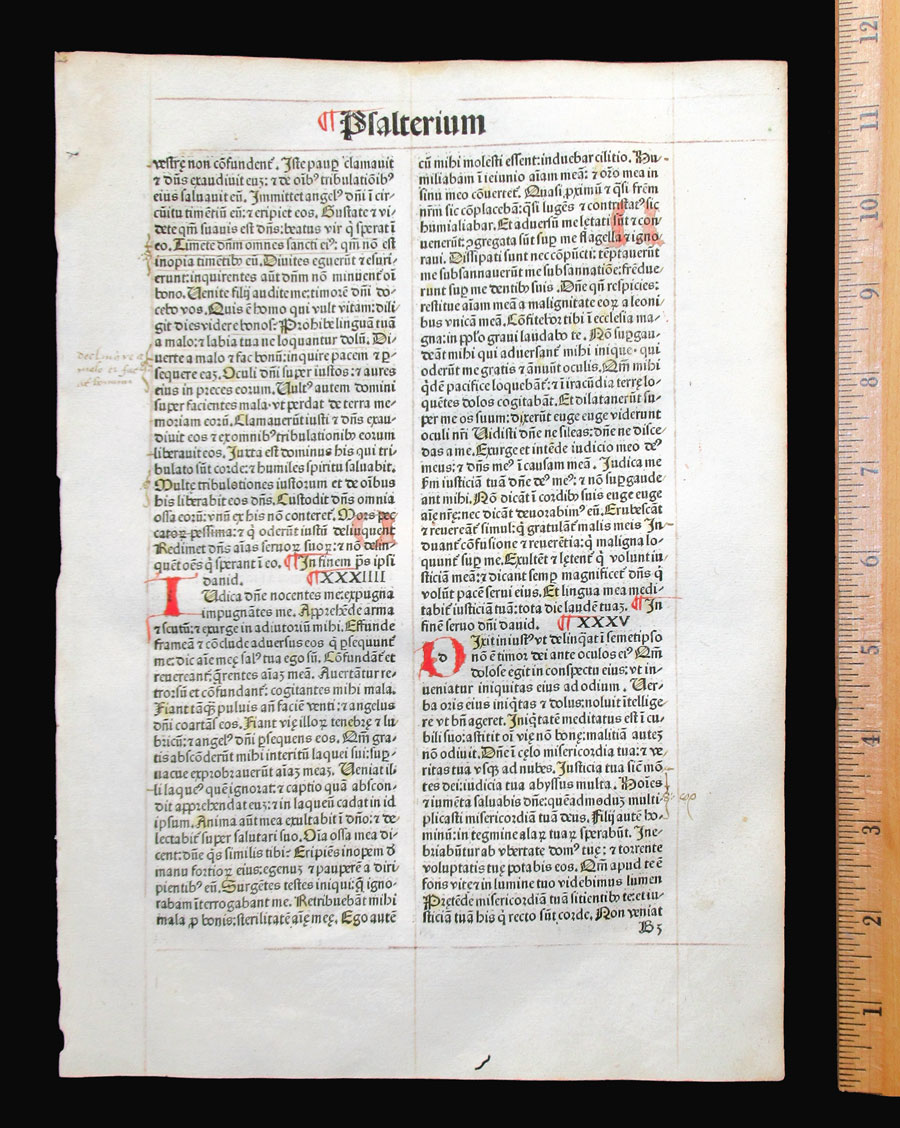 ¶ Psalterium
vestrę non cõfundent᷒. Iste paup̲ clamauit
⁊ dñs exaudiuit euʒ: ⁊ de oĩbꝰ tribulatiõibꝰ
eius saluauit eũ. Immittet angelꝰ dñi ĩ cir-
cũitu timẽtiũ eũ: ⁊ eripiet eos. Gustate ⁊ vi-
dete qm̃ suauis est dñs: beatus vir q̃ sperat ĩ
eo. Timete dñm omnes sancti eiꝰ: qm̃ nõ est
inopia timẽtibꝰ eũ. Diuites eguerũt ⁊ esuri-
erunt: inquirentes aũt dñm nõ minuent᷒ oĩ
bono. Uenite filij audite me: timorẽ dñi do-
cebo vos. Quis ẽ homo qui vult vitam: dili
git dies videre bonos? Prohibe linguã tuã
a malo: ⁊ labia tua ne loquantur dolũ. Di-
uerte a malo ⁊ fac bonũ: inquire pacem ⁊ p̲-
sequere eaʒ. Oculi dñi super iustos: ⁊ aures
eius in preces eorum. Uultꝰ autem domini
super facientes mala: vt perdat de terra me-
moriam eorũ. Clamauerũt iusti ⁊ dñs exau-
diuit eos ⁊ ex omnibꝰ tribulationibꝰ eorum
liberauit eos. Iuxta est dominus his qui tri-
bulato sũt corde: ⁊ humiles spiritu saluabit.
Multę tribulationes iustorum et de oĩbus
his liberabit eos dñs. Custodit dñs omnia
ossa eorũ: vnũ ex his nõ conteret᷒. Mors pec
catoꝝ pessima: ⁊ q̃ oderũt iustũ delinquent
Redimet dñs aĩas seruoꝝ suoꝝ: ⁊ nõ delin-
quẽt oẽs q̃ sperant ĩ eo. ¶ In finem ps̃ ipsi
dauid. ¶ XXXIIII
IUdica dñe nocentes me: expugna
impugnãtes me. Apprehẽde arma
⁊ scutũ: ⁊ exurge in adiutoriũ mihi. Effunde
frameã ⁊ cõclude aduersus eos q̃ p̲sequunt᷒
me: dic aĩe meę salꝰ tua ego sũ. Cõfundãt᷒ et
reuereant᷒: q̃rentes aĩaʒ meã. Auertãtur re-
trorsũ et cõfundant᷒: cogitantes mihi mala.
Fiant tãq̃ʒ puluis añ faciẽ venti: ⁊ angelus
dñi coartãs eos. Fiant vię illoꝝ tenebrę ⁊ lu
bricũ: ⁊ angelꝰ dñi p̲sequens eos. Qm̃ gra-
tis abscõderũt mihi interitũ laquei sui: sup̲-
uacue exprobrauerũt aĩaʒ meaʒ. Ueniat il-
li laqueꝰ quẽ ignorat: ⁊ captio quã abscon-
dit apprehendat euʒ: ⁊ in laqueũ cadat in id
ipsum. Anima aũt mea exultabit ĩ dño: ⁊ de-
lectabit᷒ super salutari suo. Oĩa ossa mea di-
cent: dñe q̃s similis tibi? Eripiẽs inopem d̃
manu fortioꝝ eius: egenuʒ ⁊ pauperẽ a diri
pientibꝰ eũ. Surgẽtes testes iniqui: q̃ igno-
rabam ĩterrogabant me. Retribuebãt mihi
mala ꝓ bonis: sterilitatẽ aĩę meę. Ego autẽ
cũ mihi molesti essent: induebar cilitio. Hu-
miliabam ĩ ieiunio aĩam meã: ⁊ oꝛõ mea in
sinu meo cõuertet᷒. Quasi ꝓximũ ⁊ q̃si frẽm
nr̃m sic cõplacebã: q̃si lugẽs ⁊ contristatꝰ sic
humialiabar. Et aduersũ me lętati sũt ⁊ con-
uenerũt: ɔgregata sũt sup̲ me flagella ⁊ igno
raui. Dissipati sunt nec cõpũcti: tẽptauerũt
me subsannauerũt me subsannatiõe: frẽdue-
runt sup̲ me dentibꝰ suis. Dñe qñ respicies:
restitue aĩam meã a malignitate eoꝝ a leoni
bus vnicã meã. Cõfitebor tibi ĩ ecclesia ma-
gna: in pplo graui laudabo te. Nõ sup̲gau-
deãt mihi qui aduersant᷒ mihi inique: qui
oderũt me gratis ⁊ ãnuũt oculis. Qm̃ mihi
q̃dẽ pacifice loquebãt᷒: ⁊ ĩ iracũdia terrę lo-
quẽtes dolos cogitabãt. Et dilatanerũt su-
per me os suum: dixerũt euge euge viderunt
oculi nr̃i Uidisti dñe ne sileas: dñe ne disce
das a me. Exurge et intẽde iudicio meo deꝰ
meus: ⁊ dñs meꝰ ĩ causam meã. Iudica me
ẜm iusticiã tuã dñe deꝰ meꝰ: ⁊ nõ sup̲gaude
ant mihi. Nõ dicãt ĩ cordibꝰ suis euge euge
aĩę nr̃ę: nec dicãt deuorabimꝰ eũ. Erubescãt
⁊ reuereãt᷒ simul: q̃ gratulãt᷒ malis meis In-
duant᷒ cõfusione ⁊ reuerẽtia: q̃ maligna lo-
quunt᷒ sup̲ me. Exultẽt ⁊ lętent᷒ q̃ volunt iu-
sticiã meã: ⁊ dicant semp̲ magnificet᷒ dñs q̃
volũt pacẽ serui eius. Et lingua mea medi-
tabit᷒ iusticiã tuã: tota die laudẽ tuaʒ. ¶ In
finẽ seruo dñi dauid. ¶ XXXV
DIxit iniustꝰ vt delinq̃at ĩ semetipso
nõ ẽ timor dei ante oculos eiꝰ Qm̃
dolose egit in conspectu eius: vt in-
ueniatur iniquitas eius ad odium. Uer-
ba oris eius iniq̃tas ⁊ dolus: noluit ĩtellige
re vt bñ ageret. Iniq̃tatẽ meditatus est ĩ cu-
bili suo: astitit oĩ vię nõ bonę: malitiã auteʒ
nõ odiuit. Dñe ĩ cęlo misericordia tua: ⁊ ve
ritas tua vsq̃ʒ ad nubes. Iusticia tua sic̃ mõ
tes dei: iudicia tua abyssus multa. Hoĩes
⁊ iumẽta saluabis dñe: quẽadmoduʒ multi-
plicasti misericordiã tuã deus. Filij autẽ ho-
minũ: in tegmine alaꝝ tuaꝝ sperabũt. Ine-
briabũtur ab vbertate domꝰ tuę: ⁊ torrente
voluptatis tuę potabis eos. Qm̃ apud te ẽ
fons vitę: ⁊ in lumine tuo videbimus lumen
Prętede misericordiã tuã sitientibꝰ te: et iu-
sticiã tuã his q̃ recto sũt corde. Non veniat
B5
12
11
10
9
8
7
6
5
4
3
2
1